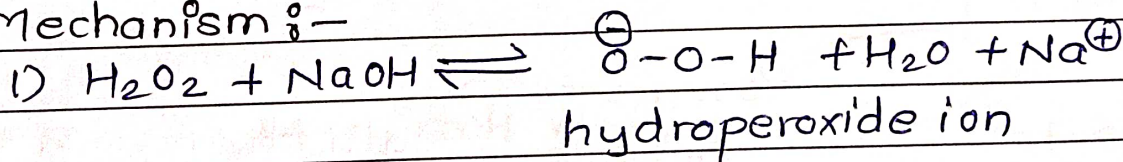 Mechanism :-
1) H2O2 + NaOH ⇌ ⊖O-O-H + H2O + Na⊕
hydroperoxide ion